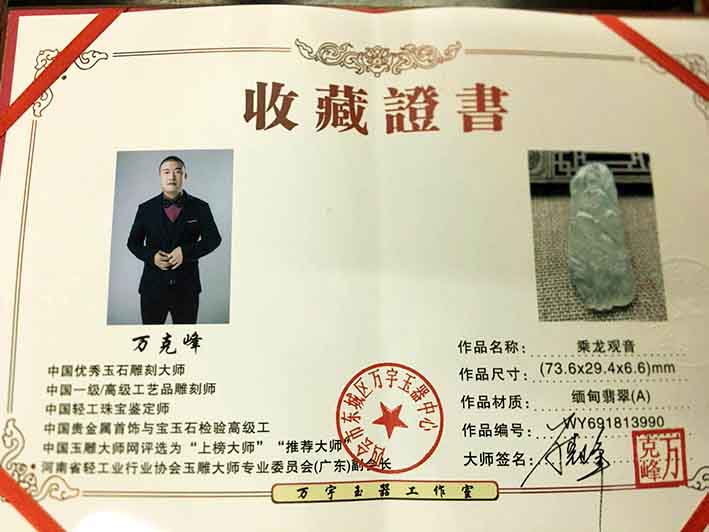 收藏證書
万克峰
中国优秀玉石雕刻大师
中国一级/高级工艺品雕刻师
中国轻工珠宝鉴定师
中国贵金属首饰与宝玉石检验高级工
中国玉雕大师网评选为“上榜大师” “推荐大师”
河南省轻工业行业协会玉雕大师专业委员会(广东)副会长
作品名称: 乘龙观音
作品尺寸: (73.6x29.4x6.6)mm
作品材质: 缅甸翡翠(A)
作品编号: WY691813990
大师签名: 万克峰
四会市东城区万宇玉器中心
万克峰
万宇玉器工作室